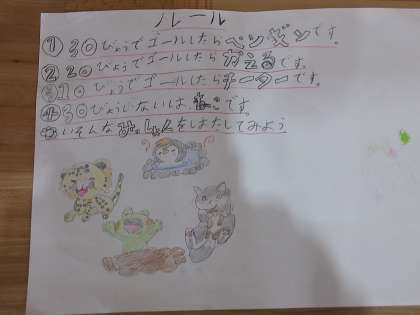 ルール
①30びょうでゴールしたらペンギンです。
②20びょうでゴールしたらかえるです。
③10びょうでゴールしたらチーターです。
④30びょういないは、ねこです。
いろんな をしまたしてみよう